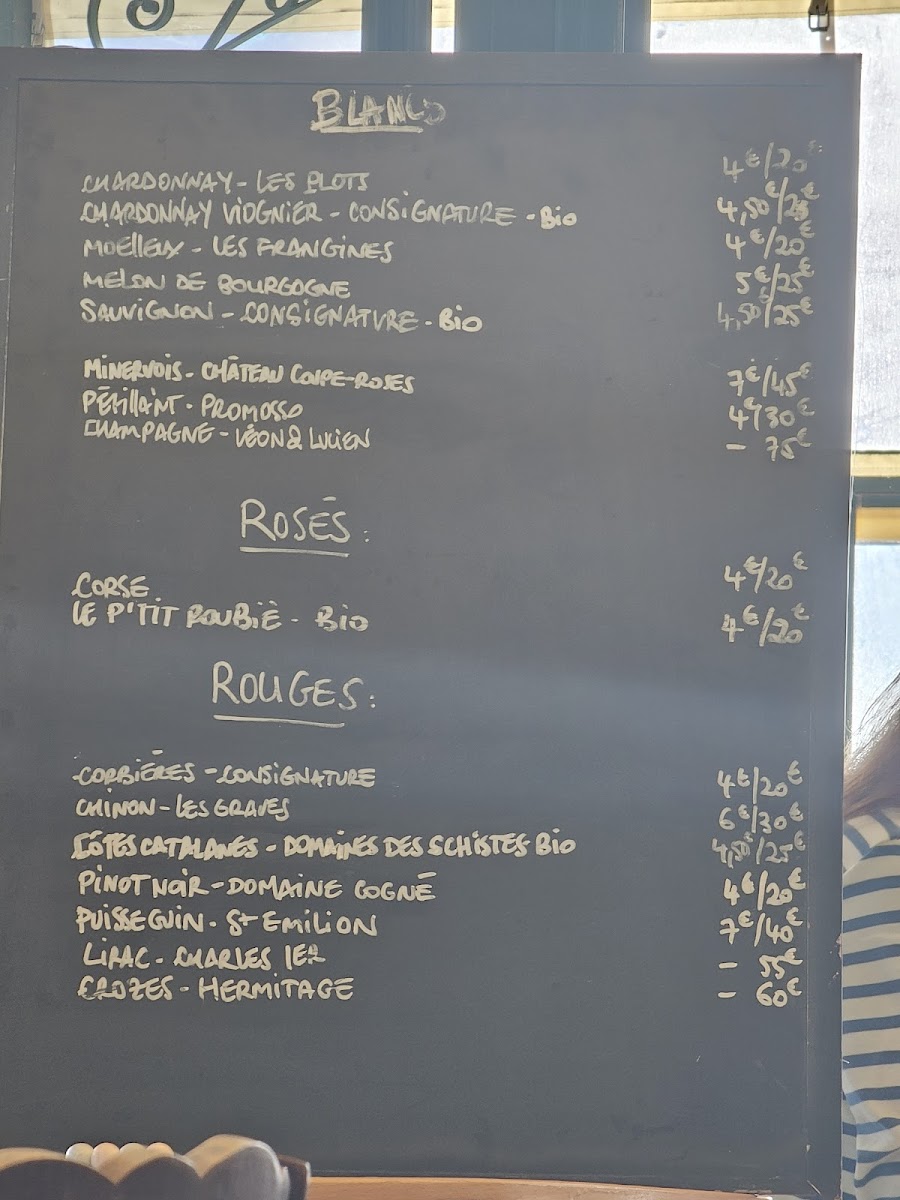 BLANCS
CHARDONNAY - LES PLOTS 4€/20€
CHARDONNAY VIOGNIER - CONSIGNATURE - Bio 4,50€/25€
MOELLEUX - LES FRANGINES 4€/20€
MELON DE BOURGOGNE 5€/25€
SAUVIGNON - CONSIGNATURE - Bio 4,50€/25€
MINERVOIS - CHÂTEAU COUPE-ROSES 7€/45€
PÉTILLANT - PROMOSSO 4€/30€
CHAMPAGNE - LÉON & LUCIEN - 75€
ROSÉS :
CORSE 4€/20€
LE P'TIT ROUBIÉ - Bio 4€/20€
ROUGES :
CORBIÈRES - CONSIGNATURE 4€/20€
CHINON - LES GRAVES 6€/30€
CÔTES CATALANES - DOMAINES DES SCHISTES Bio 4,50€/25€
PINOT NOIR - DOMAINE GOGNÉ 4€/20€
PUISSEGUIN - St EMILION 7€/40€
LIRAC - CHARLES IER - 55€
CROZES - HERMITAGE - 60€